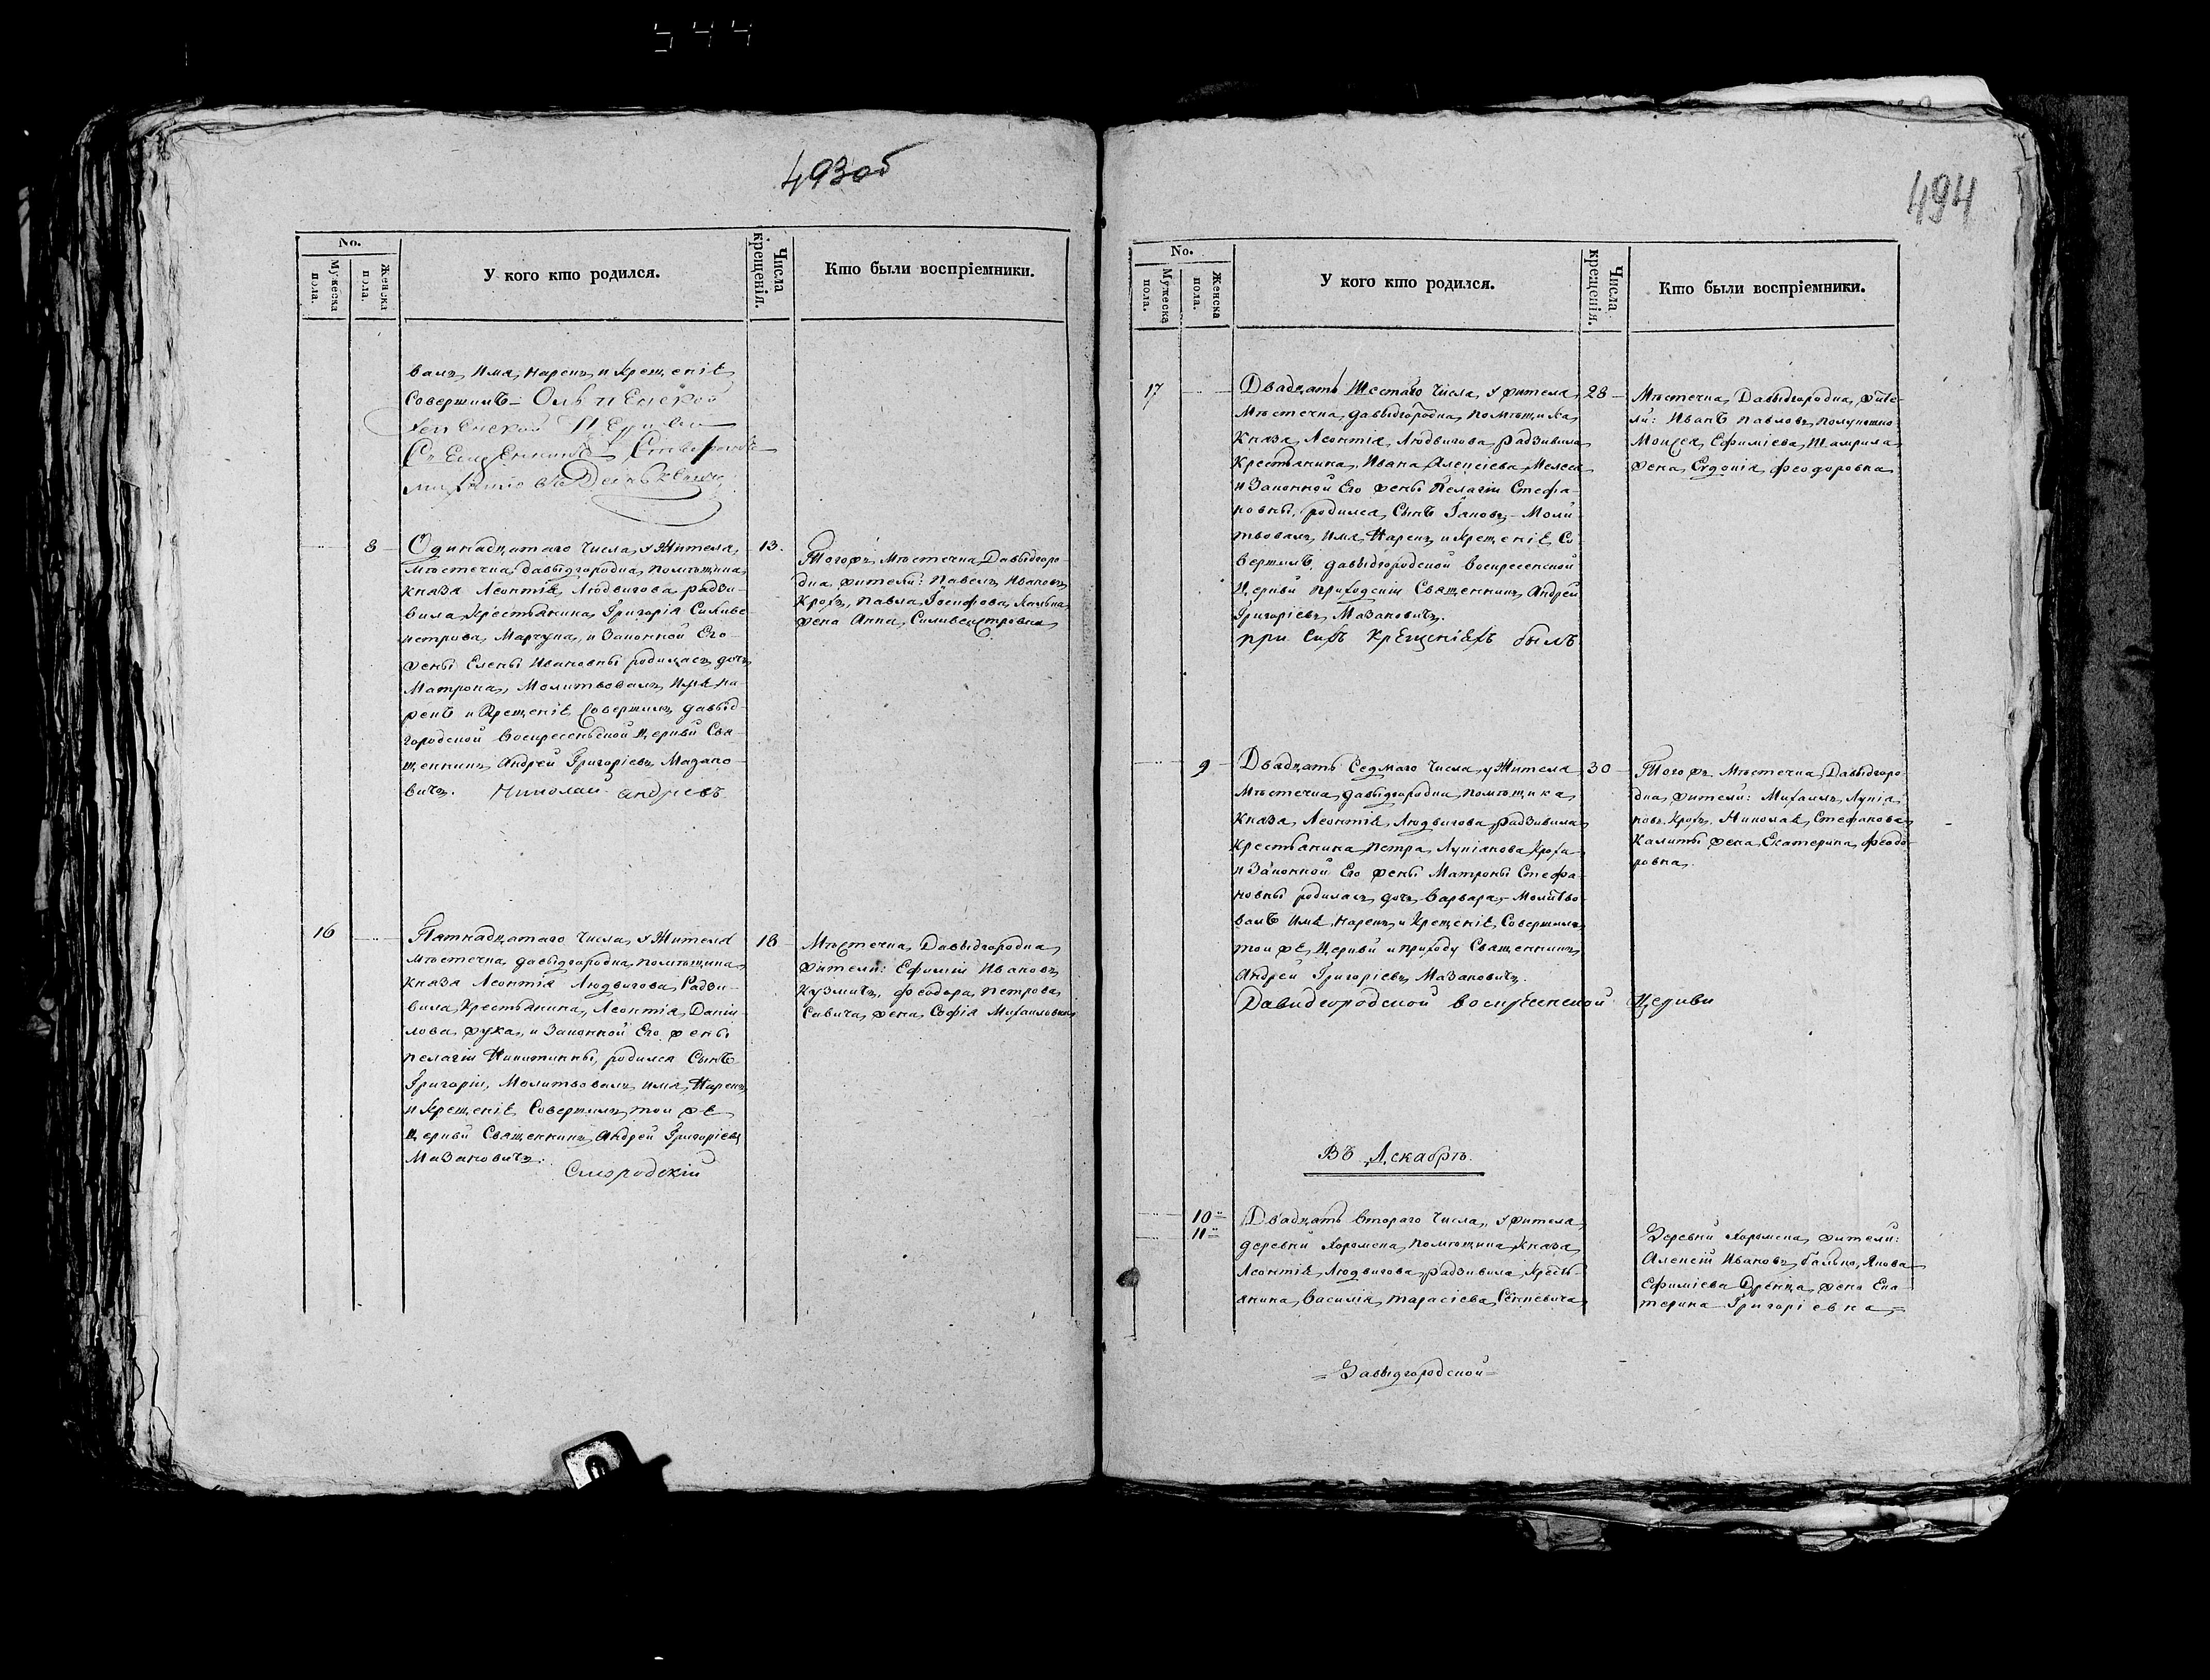 544
493об
No.
Мужеска пола.
Женска пола.
У кого кто родился.
Числа крещенія.
Кто были воспріемники.
валъ, Имя, Нарекъ и Крещеніе
Совершилъ
Церкви
8
Одинадцатаго Числа, у Жителя
Мѣстечка, давыдгородка, помѣщика
Князя Леонтія, Людвигова, радзи-
вила, Крестьянина, Григорія Силиве-
строва, Марчука, и Законной Его
жены Елены Ивановны родилась, дочь
Матрона, Молитвовалъ, Имя, на-
рекъ и Крещеніе Совершилъ давыд-
городской Воскресенской Церкви Свя-
щенникъ Андрей Григоріевъ Мазано-
вичъ. Николай Андреевъ
13.
Тогожъ, Мѣстечка, Давыдгоро-
дка, жители: Павелъ Ивановъ
Крохъ, Павла, Іосифова,
жена Анна, Силивестровна
16
Пятнадцатаго Числа, у Жителя
Мѣстечка, давыдгородка, помѣщика
Князя Леонтія Людвигова, Радзи-
вила, Крестьянина, Леонтія, Даніи-
лова, жука, и Законной Его, жены
пелагіи Никитичны, родился Сынъ
Григорій, Молитвовалъ, Имя, Нарекъ
и Крещеніе, Совершилъ, той же
Церкви Священникъ, Андрей Григоріевъ
Мазановичъ.
18
Мѣстечка, Давыдгородка,
жители: Ефимій Ивановъ
Кузмичъ, Феодора, петрова
Савича, жена, Софія Михаиловна
494
No.
Мужеска пола.
Женска пола.
У кого кто родился.
Числа крещенія.
Кто были воспріемники.
17
Двадцать Шестаго Числа, у жителя,
Мѣстечка, давыдгородка, помѣщика,
Князя, Леонтія, Людвигова, радзивила
Крестьянина, Ивана Алексіева,
и Законной Его жены Пелагіи Стефа-
новны, родился, Сынъ Іаковъ, Моли-
твовалъ, Имя, Нарекъ, и Крещеніе Со-
вершилъ, давыдгородской Воскресенской
Церкви приходскій Священникъ, Андрей
Григоріевъ, Мазановичъ.
при сихъ Крещеніяхъ былъ
28
Мѣстечка, Давыдгородка, жите-
ли: Иванъ Павловъ,
Моисея, Ефиміева,
жена, Евдокія, феодоровна
9
Двадцать Седмаго Числа, у Жителя
Мѣстечка, давыдгородка, помѣщика
Князя, Леонтія, Людвигова, радзивила
Крестьянина, Петра, Лукіанова, Кроха
и Законной Его жены Матроны Стефа-
новны родилась, дочь Варвара, Молитво-
валъ Имя, Нарекъ, и Крещеніе, Совершилъ
той же, Церкви и приходу Священникъ,
Андрей Григоріевъ, Мазановичъ.
Давидгородской воскресенской Церкви
30
Тогожъ Мѣстечка, Давыдгоро-
дка, жители: Михаилъ, Лукіа-
новъ, Крохъ, Николая, Стефанова
жена, Екатерина, Феодо-
ровна.
Въ Декабрѣ.
10
11
Двадцать Втораго Числа, у жителя
деревни Хоромска, помѣщика, Князя,
Леонтія, Людвигова, радзивила, Кресть-
янина, Василія, тарасіева, Сенкевича
Деревни Хоромска, жители:
Алексій Ивановъ, Якова
Ефиміева жена Ека-
терина Григоріевна
=Давыдгородской=